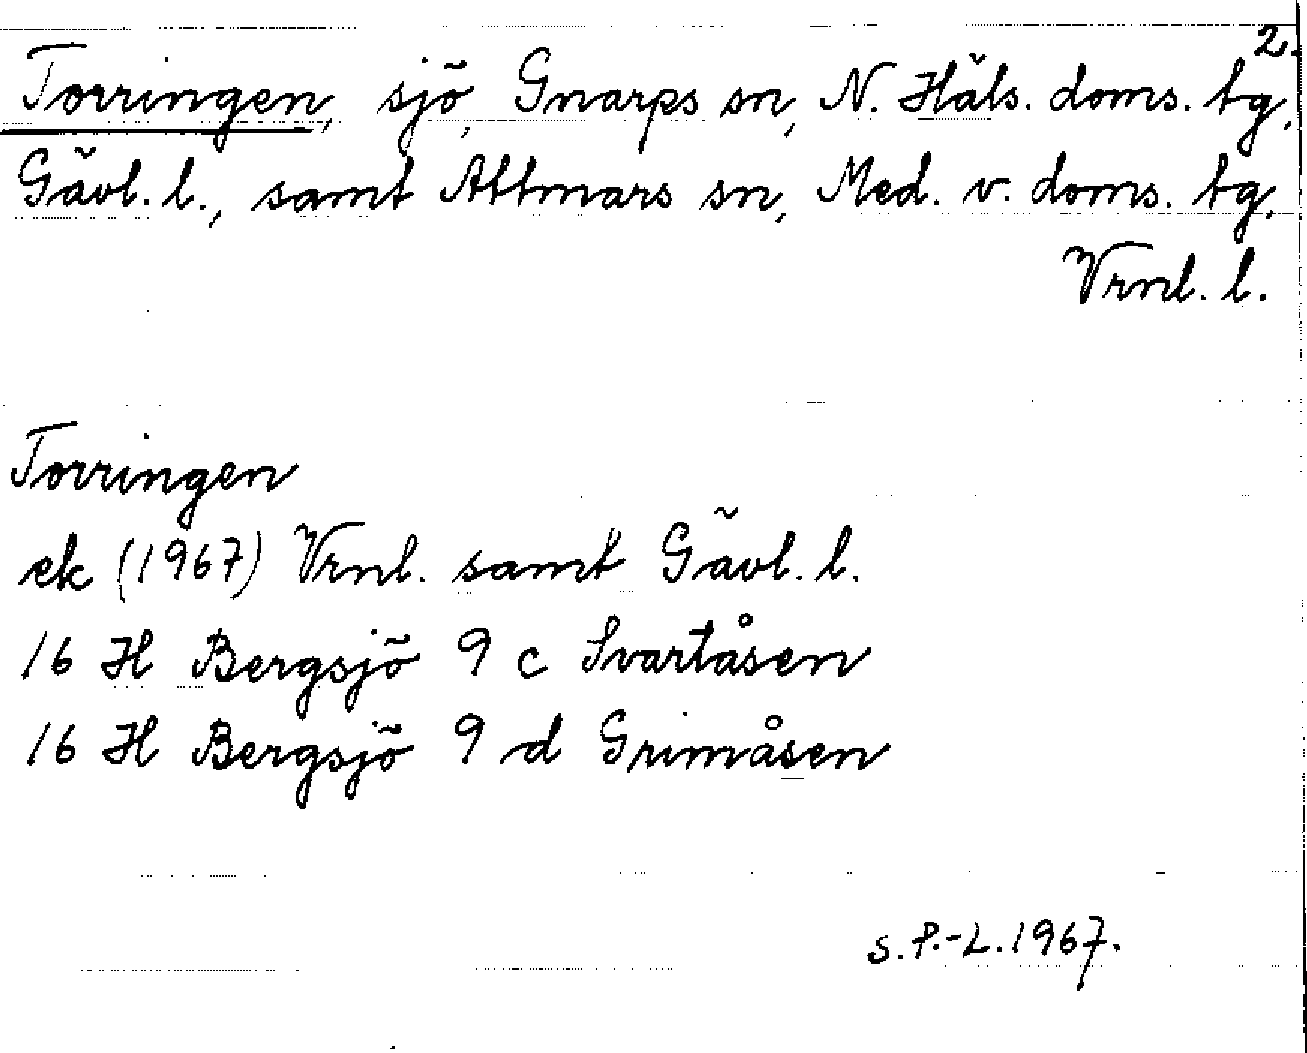 2.
Torringen, sjö, Gnarps sn, N. Häls. doms. tg,
Gävl. l., samt Attmars sn, Med. v. doms. tg,
Vrnl. l.
Torringen
ek (1967) Vrnl. samt Gävl. l.
16 H Bergsjö 9 c Svartåsen
16 H Bergsjö 9 d Grimåsen
S. P.-L. 1967.